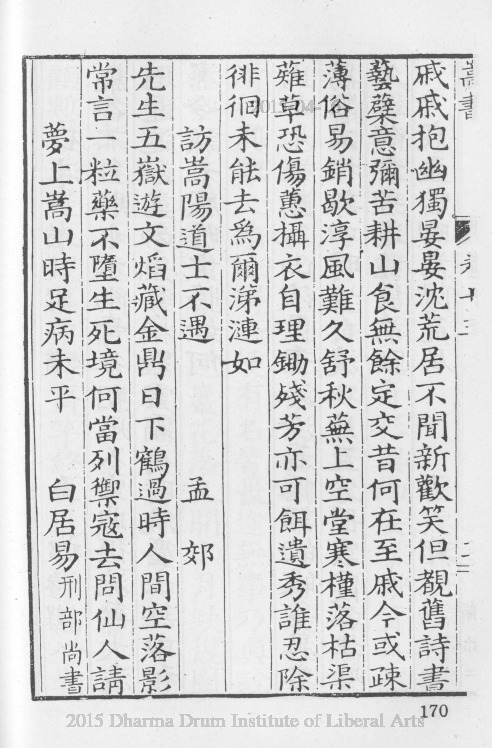 嵩書
戚戚抱幽獨晏晏沈荒居不聞新歡笑但覩舊詩書
藝蘗意彌苦耕山食無餘定交昔何在至戚今或疎
薄俗易銷歇淳風難久舒秋蕪上空堂寒槿落枯渠
薙草恐傷蕙攝衣自理鋤殘芳亦可餌遺秀誰忍除
徘徊未能去為爾涕漣如
訪嵩陽道士不遇 孟郊
先生五嶽遊文焰藏金鼎日下鶴過時人間空落影
常言一粒藥不墮生死境何當列禦寇去問仙人請
夢上嵩山時足病未平 白居易刑部尚書
170
2015 Dharma Drum Institute of Liberal Arts